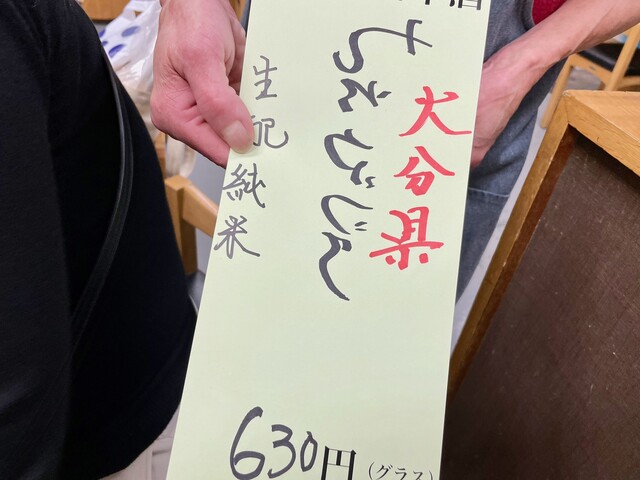 大分県
ちえびじん
生酛純米
630円(グラス)